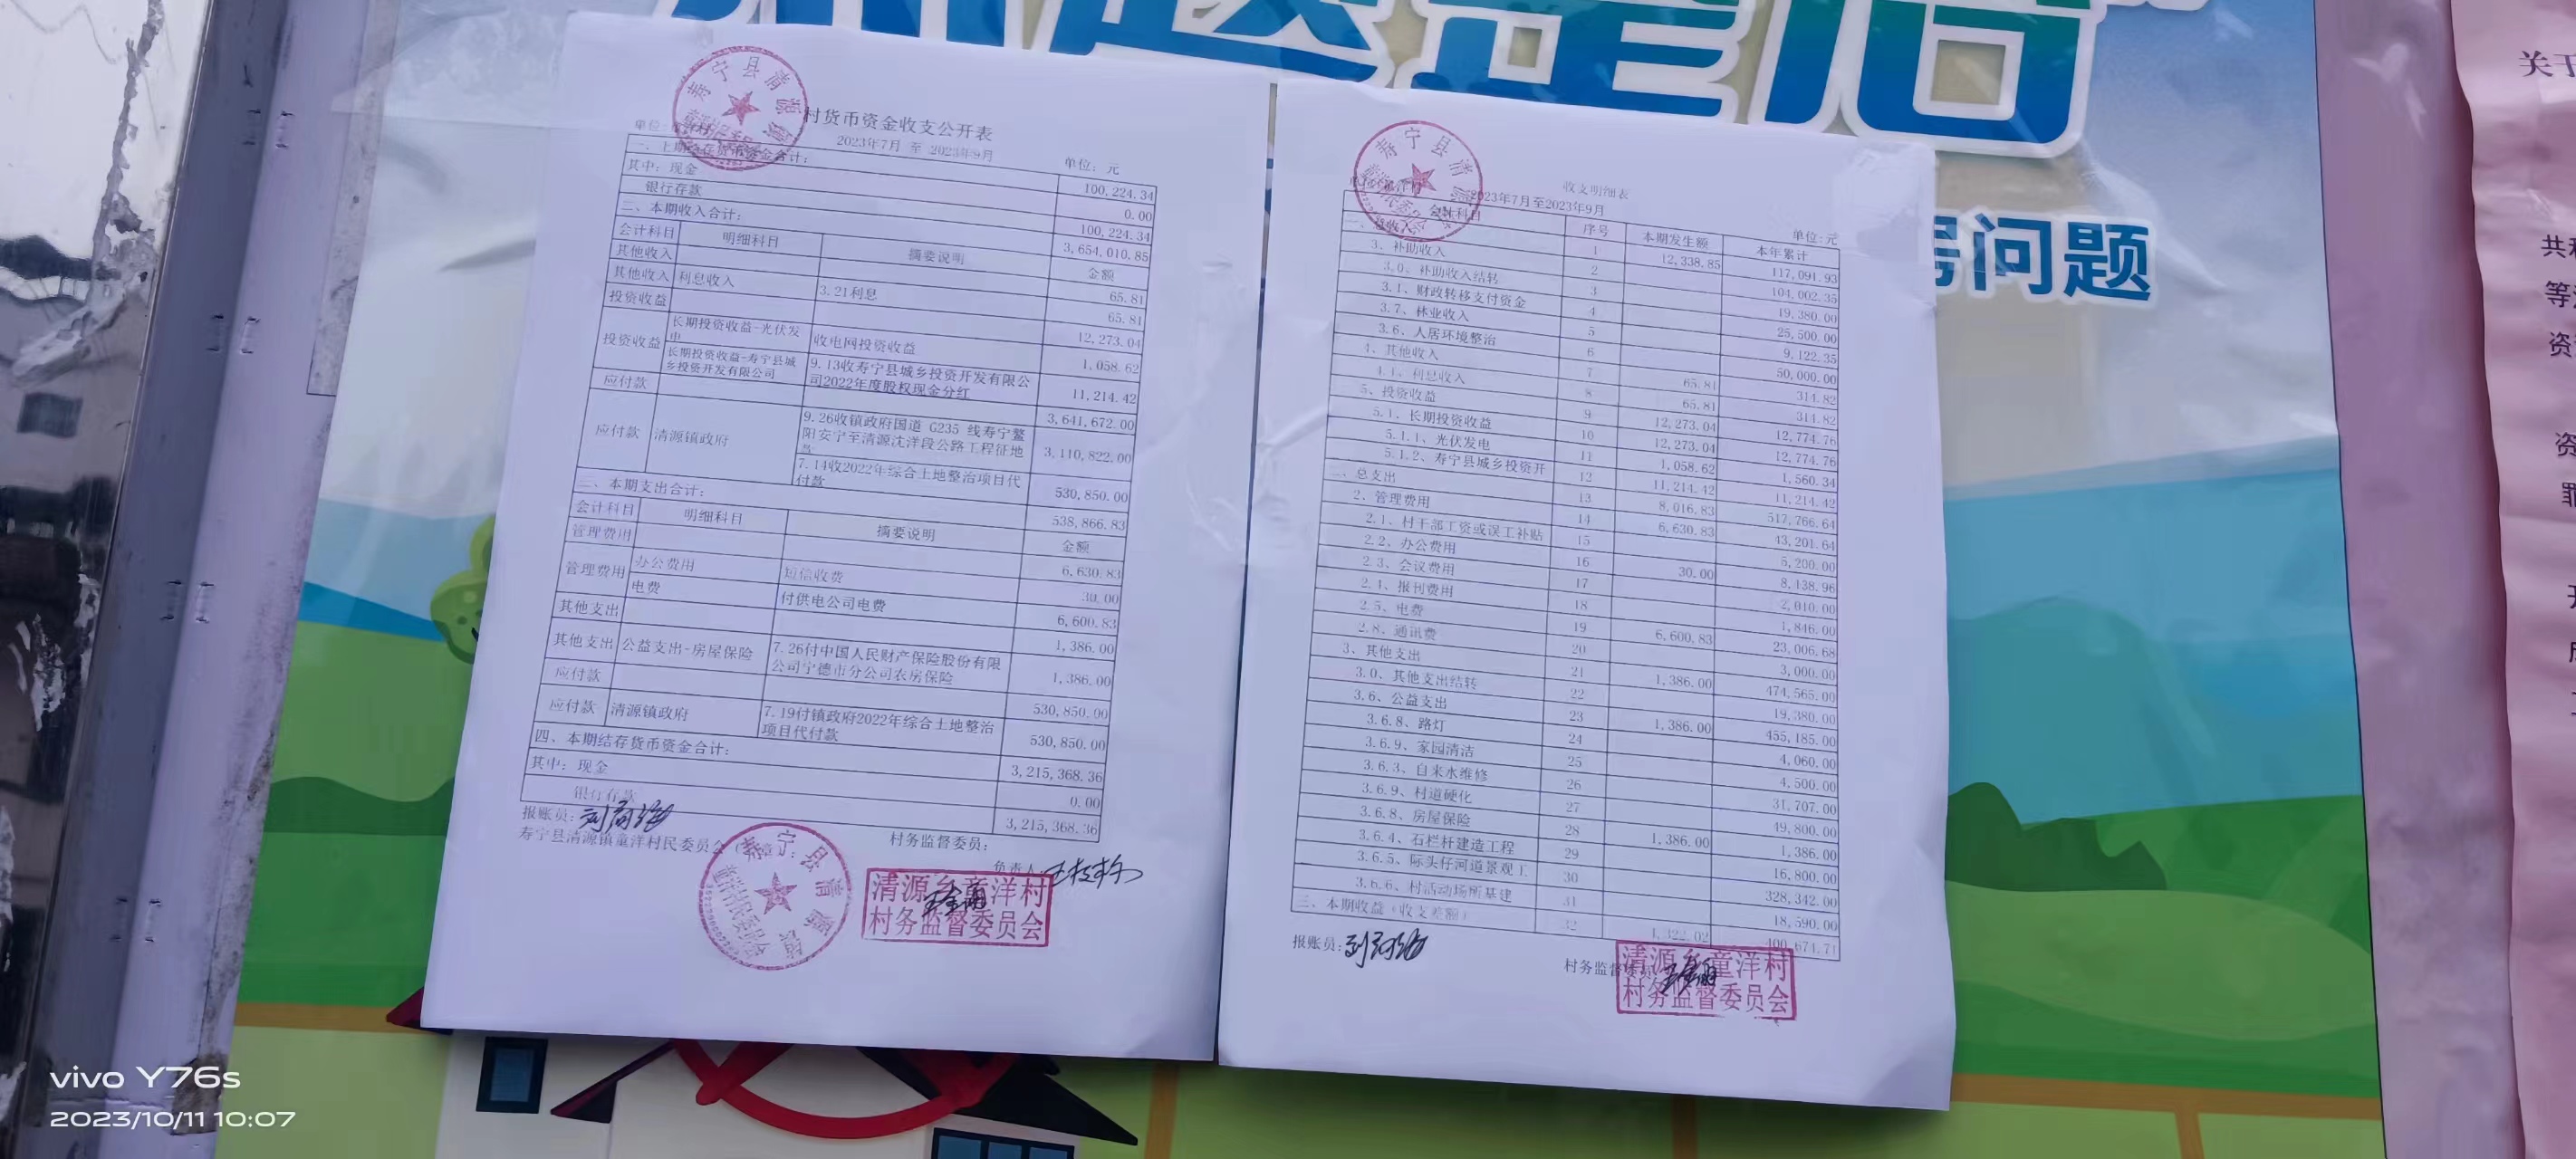 村货币资金收支公开表
2023年7月 至 2023年9月
单位：元
一、上期结存货币资金合计： 100,224.34
其中：现金 0.00
银行存款 100,224.34
二、本期收入合计： 3,654,010.85
会计科目 明细科目 摘要说明 金额
其他收入 65.81
其他收入 利息收入 3.21利息 65.81
投资收益 12,273.04
投资收益 长期投资收益-光伏发电 收电网投资收益 1,058.62
长期投资收益-寿宁县城乡投资开发有限公司 9.13收寿宁县城乡投资开发有限公司2022年度股权现金分红 11,214.42
应付款 3,641,672.00
应付款 清源镇政府 9.26收镇政府国道 G235 线寿宁鳌阳安宁至清源沈洋段公路工程征地 3,110,822.00
7.14收2022年综合土地整治项目代付款 530,850.00
三、本期支出合计： 538,866.83
会计科目 明细科目 摘要说明 金额
管理费用 6,630.83
管理费用 办公费用 短信收费 30.00
电费 付供电公司电费 6,600.83
其他支出 1,386.00
其他支出 公益支出-房屋保险 7.26付中国人民财产保险股份有限公司宁德市分公司农房保险 1,386.00
应付款 530,850.00
应付款 清源镇政府 7.19付镇政府2022年综合土地整治项目代付款 530,850.00
四、本期结存货币资金合计： 3,215,368.36
其中：现金 0.00
银行存款 3,215,368.36
报账员：
村务监督委员：
寿宁县清源镇童洋村民委员会
负责人
清源乡童洋村
村务监督委员会
收支明细表
2023年7月至2023年9月
单位:元
会计科目 序号 本期发生额 本年累计
一、总收入 1 12,338.85 117,091.93
3、补助收入 2 104,002.35
3.0、补助收入结转 3 19,380.00
3.1、财政转移支付资金 4 25,500.00
3.7、林业收入 5 9,122.35
3.6、人居环境整治 6 50,000.00
4、其他收入 7 65.81 314.82
4.1、利息收入 8 65.81 314.82
5、投资收益 9 12,273.04 12,774.76
5.1、长期投资收益 10 12,273.04 12,774.76
5.1.1、光伏发电 11 1,058.62 1,560.34
5.1.2、寿宁县城乡投资开 12 11,214.42 11,214.42
二、总支出 13 8,016.83 517,766.64
2、管理费用 14 6,630.83 43,201.64
2.1、村干部工资或误工补贴 15 5,200.00
2.2、办公费用 16 30.00 8,138.96
2.3、会议费用 17 2,010.00
2.4、报刊费用 18 1,846.00
2.5、电费 19 6,600.83 23,006.68
2.8、通讯费 20 3,000.00
3、其他支出 21 1,386.00 474,565.00
3.0、其他支出结转 22 19,380.00
3.6、公益支出 23 1,386.00 455,185.00
3.6.8、路灯 24 4,060.00
3.6.9、家园清洁 25 4,500.00
3.6.3、自来水维修 26 31,707.00
3.6.9、村道硬化 27 49,800.00
3.6.8、房屋保险 28 1,386.00 1,386.00
3.6.4、石栏杆建造工程 29 16,800.00
3.6.5、际头仔河道景观工 30 328,342.00
3.6.6、村活动场所基建 31 18,590.00
三、本期收益（收支差额） 32 4,322.02 -400,674.71
报账员:
村务监督委员
清源乡童洋村
村务监督委员会
寿宁县清源
问题
关于
共和
vivo Y76s
2023/10/11 10:07